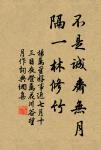 不是誠齋無月
隔一林修竹
楊萬里好事近七月十
三日夜登萬花川谷望
月作詞典調集